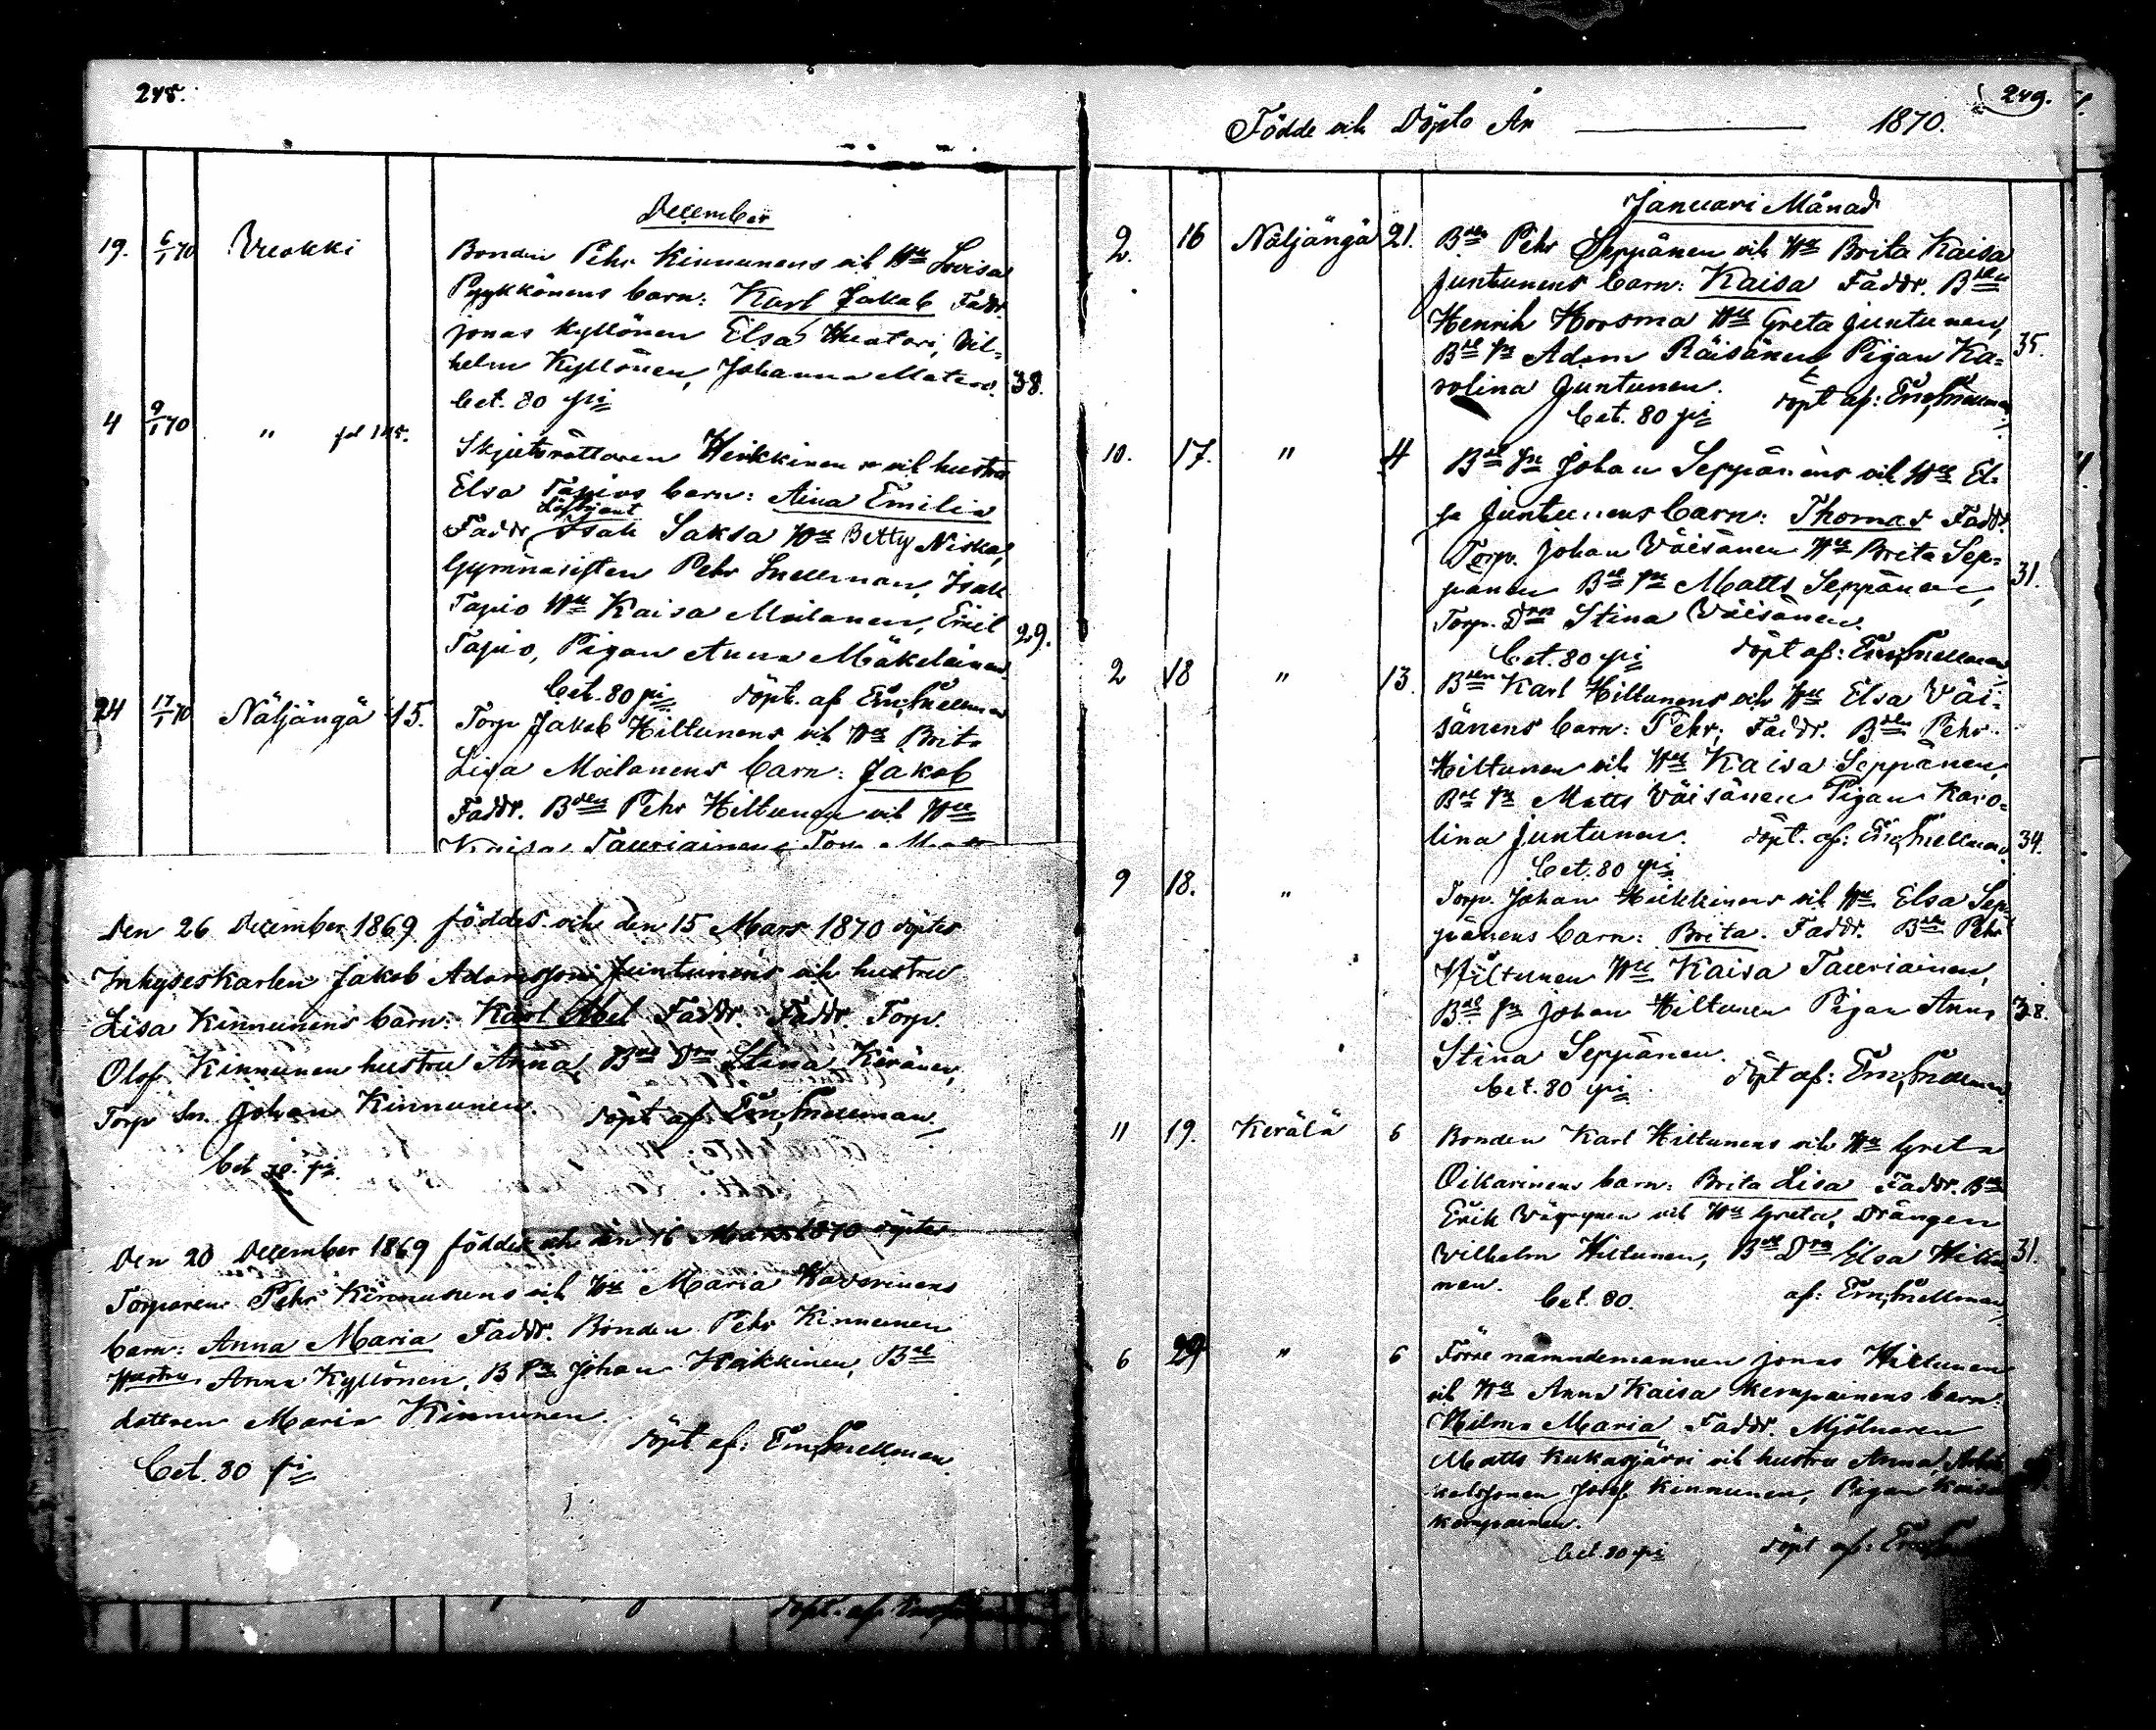 248.
December
19. 6/1 70 Vuokki Bonden Pehr Kinnunens och Hu Lovisa
Pyykkönens barn: Karl Jakob Faddr.
Jonas Kyllönen Elsa Huotari, Vil-
helm Kyllönen, Johanna Matero. 38.
bet. 80 pi
4 9/1 70 " fol 145. Skjutsrättaren Heikkinen och hustru
Elsa Tapios barn: Aina Emilia
Faddr Isak Saksa Hu Betty Niska,
Gymnasisten Pehr Snellman, Isak
Tapio Hu Kaisa Moilanen, Emil
Tapio, Pigan Anna Mäkeläinen. 29.
bet. 80 pi döpt. af Em. Snellman
24 17/1 70 Näljängä 15. Torp Jakob Hiltunens och Hu Brita
Lisa Moilanens barn: Jakob
Faddr. Bden Pehr Hiltunen och Hu
Kaisa Tauriainen, Torp. Matts
Den 26 December 1869 föddes och den 15 Mars 1870 döptes
Inhyseskarlen Jakob Adamsson Juntunens och hustru
Lisa Kinnunens barn: Karl Abel Faddr. Faddr. Torp.
Olof Kinnunen hustru Anna, Bde Drn Stina Keränen,
Torp Sn. Johan Kinnunen. döpt af Em. Snellman.
bet 80. pi.
Den 20 December 1869 föddes och den 16 Mars 1870 döptes
Torparen Pehr Kinnunens och Hu Maria Kavorinens
barn: Anna Maria Faddr. Bonden Pehr Kinnunen
Hustru Anna Kyllönen, B Sn Johan Heikkinen, Bde
dottren Maria Kinnunen.
döpt af: Em. Snellman.
bet. 80 pi
döpt. af:
249.
Födde och Döpte År 1870.
Januari Månad
2. 16 Näljängä 21. Bden Pehr Seppänen och Hu Brita Kaisa
Juntunens barn: Kaisa Faddr. Bden
Henrik Horsma Hu Greta Juntunen,
Bde Sn Adam Räisänen Pigan Ka- 35.
rolina Juntunen. döpt af: Em. Snellman
bet. 80 pi
10. 17. " 4 Bde Sn Johan Seppänens och Hu El-
sa Juntunens barn: Thomas Faddr.
Torp. Johan Väisänen Hu Brita Sep-
pänen Bde Sn Matts Seppänen, 31.
Torp. Drn Stina Väisänen.
bet. 80 pi döpt af: Em. Snellman
2 18 " 13. Bden Karl Hiltunens och Hu Elsa Väi-
sänens barn: Pehr; Faddr. Bden Pehr
Hiltunen och Hu Kaisa Seppänen,
Bde Sn Matts Väisänen Pigan Karo-
lina Juntunen. döpt. af: Em. Snellman 34.
bet. 80 pi
9 18. " Torp. Johan Heikkinens och Hu Elsa Sep-
pänens barn: Brita. Faddr. Bden Pehr
Hiltunen Hu Kaisa Tauriainen,
Bde Sn Johan Hiltunen Pigan Anna 38.
Stina Seppänen.
bet. 80 pi döpt af: Em. Snellman
11 19. Kerälä 6 Bonden Karl Hiltunens och Hu Greta
Oikarinens barn: Brita Lisa Faddr. Bden
Erik Väyrynen och Hu Greta, Drängen
Vilhelm Hiltunen, Bde Drn Elsa Hiltu- 31.
nen. bet. 80. af: Em. Snellman
6 " 6 Förre nämndemannen Jonas Hiltunen
och Hu Anna Kaisa Kemppainens barn:
Hilma Maria Faddr. Mjölnaren
Matts Kukasjärvi och hustru Anna,
Josef Kinnunen, Pigan Kaisa
Kemppainen.
bet. 80 pi döpt af: